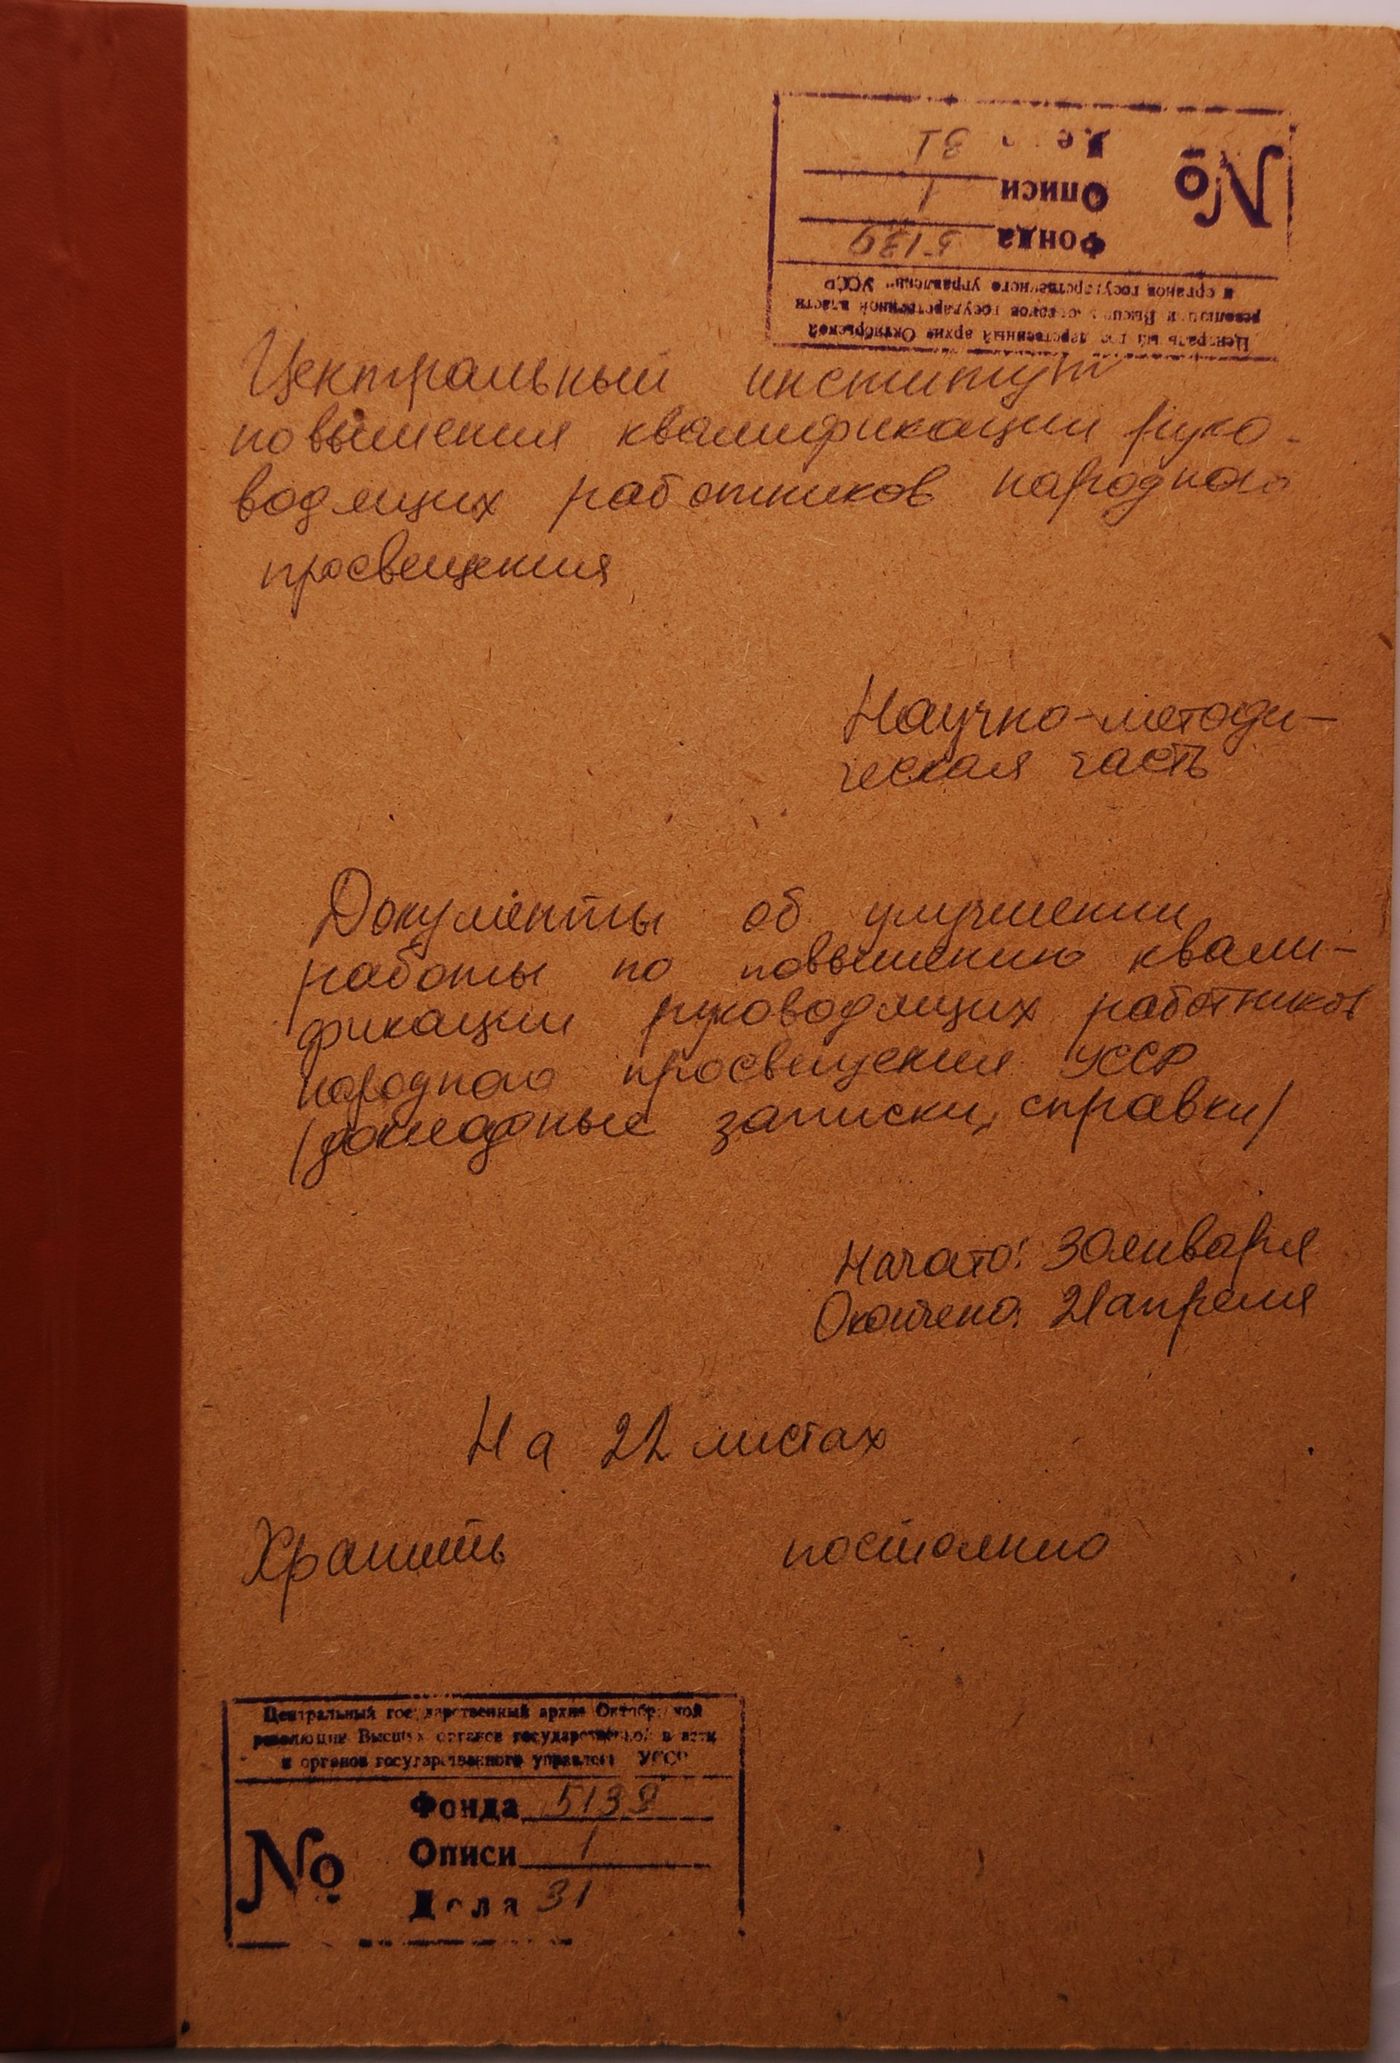 Центральный государственный архив Октябрьской
революции Высших органов государственной власти
и органов государственного управления УССР
№
Фонда 5139
Описи 1
Дела 31
Центральный институт
повышения квалификации руко-
водящих работников народного
просвещения
Научно-методи-
ческая часть
Документы об улучшении
работы по повышению квали-
фикации руководящих работников
народного просвещения УССР
/докладные записки, справки/
Начато: 30 января
Окончено: 21 апреля
На 22 листах
Хранить постоянно
Центральный государственный архив Октябрьской
революции Высших органов государственной власти
и органов государственного управления УССР
№
Фонда 5139
Описи 1
Дела 31